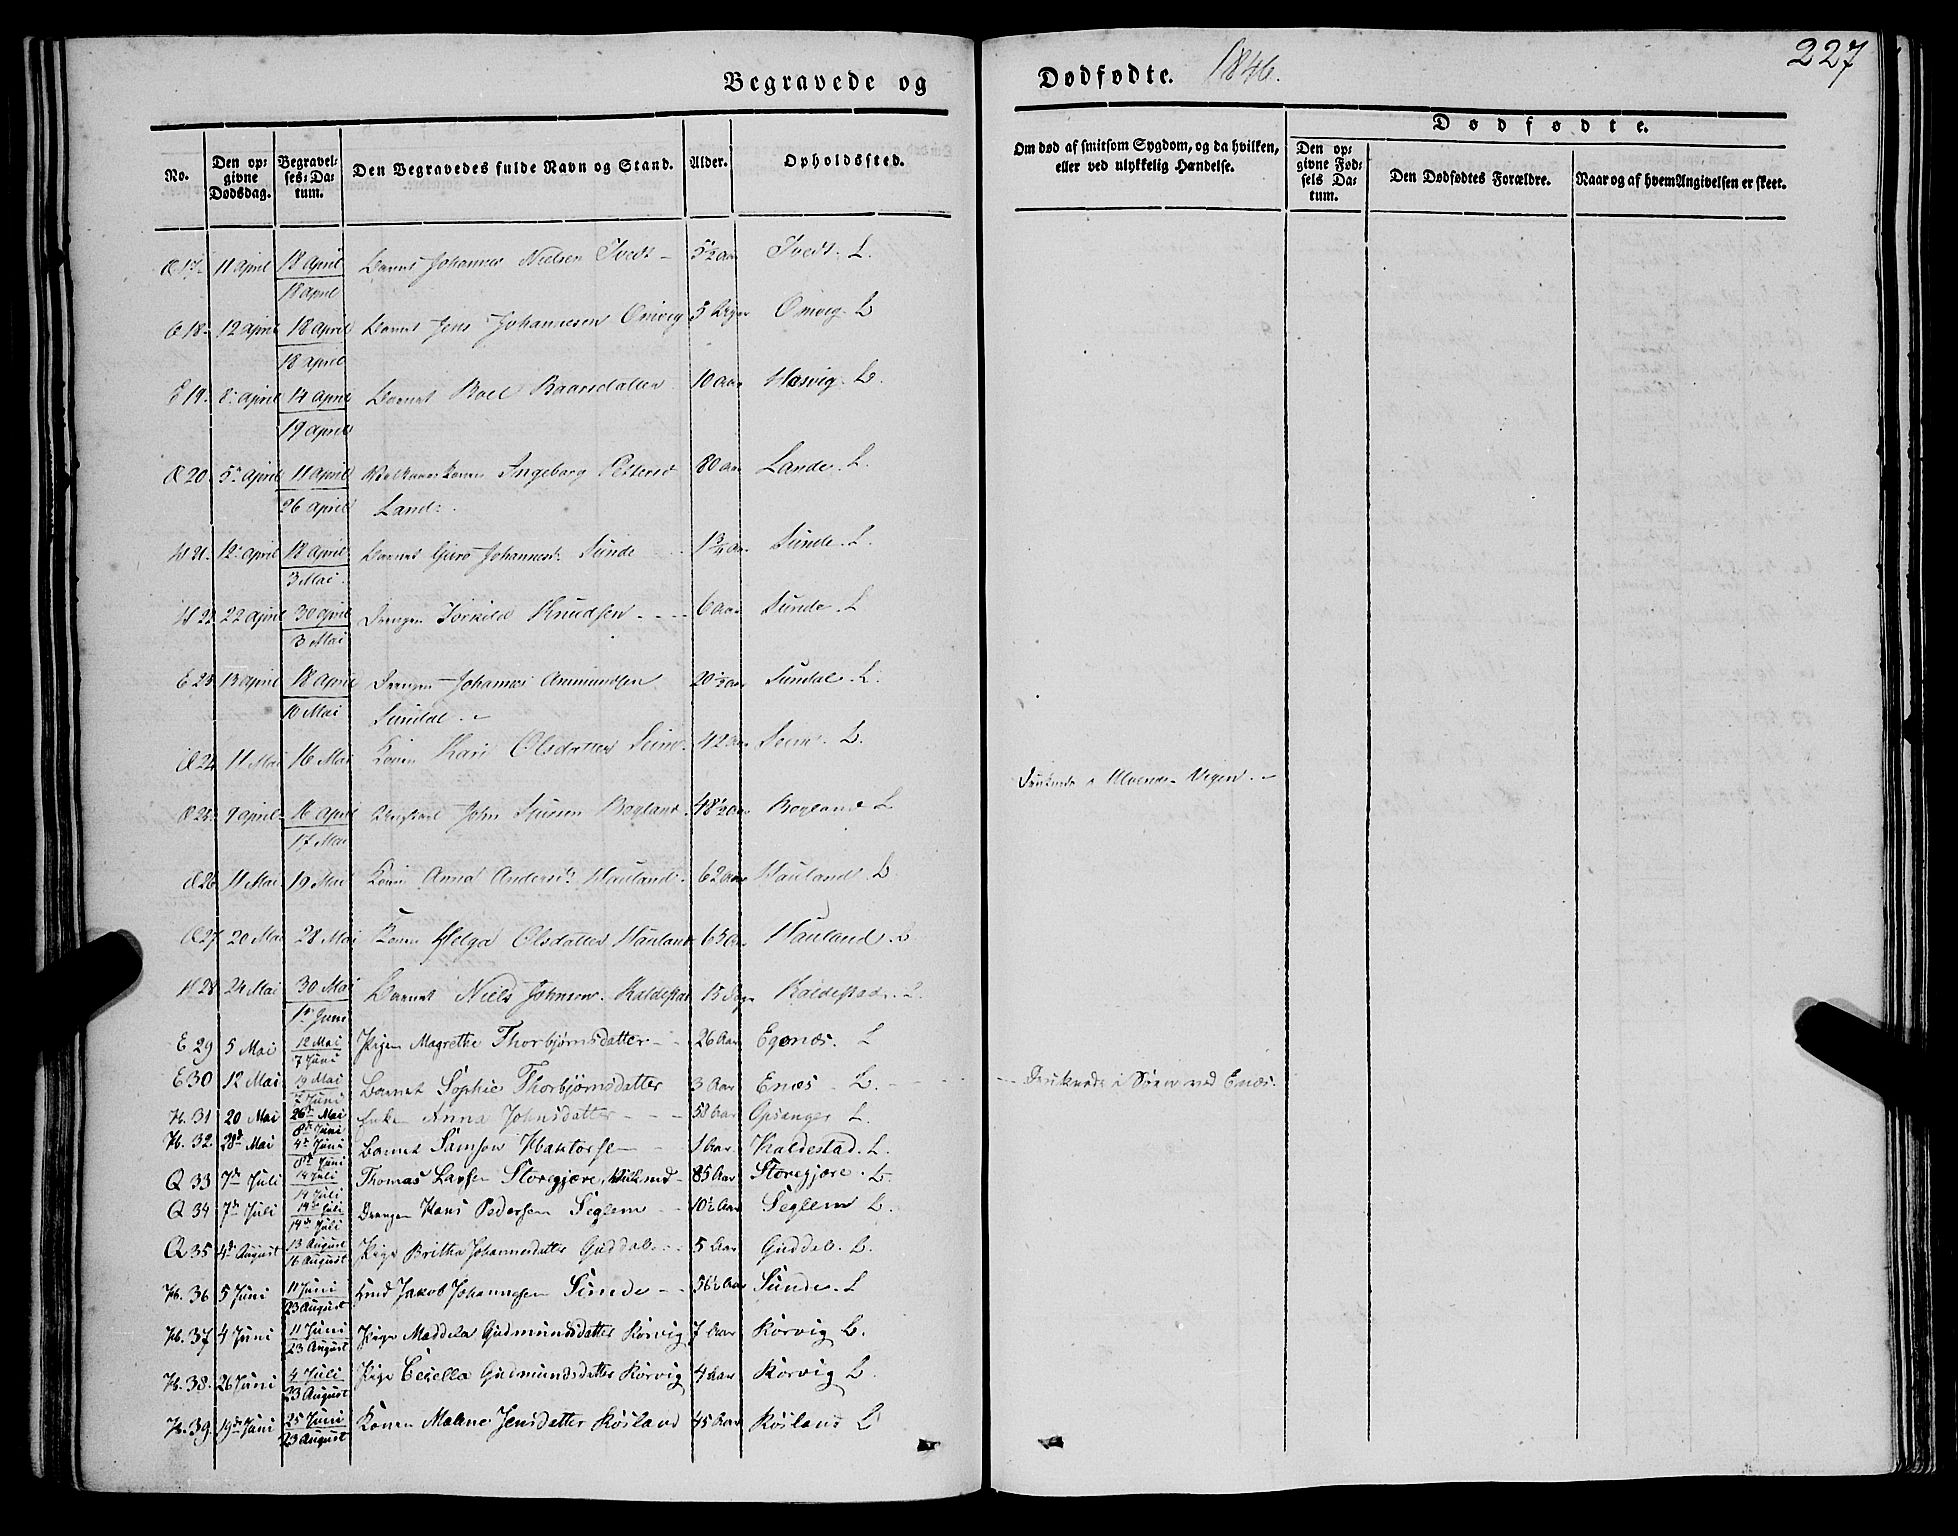 227
Begravede og Dødfødte. 1846.
No.
Den opgivne Dødsdag.
Begravelses-Datum.
Den Begravedes fulde Navn og Stand.
Alder.
Opholdssted.
Om død af smitsom Sygdom, og da hvilken, eller ved ulykkelig Hændelse.
Dødfødte.
Den opgivne Fødsels Datum.
Den Dødfødtes Forældre.
Naar og af hvem Angivelsen er skeet.
17. 11 April 18 April Barnet Johannes Nielsen Tvedt - 5½ Aar Tvedt. L.
18 April
18. 12 April 18 April Barnet Jens Johannesen Omvig 3 Omvig. L
18 April
E 19. 8. April 14 April Barnet Boel Baarsdatter 10 Aar L.
19 April
20 5te April 11 April Ingeborg Pettersd 80 Aar Lande. L.
26 April Lande
H 21. 12. April 18 April Barnet Guro Johannesd. Sunde 1¾ Aar Sunde. L.
3 Mai
H 22. 22 April 30 April Drengen Torkild Knudsen 6 Aar Sunde. L
3 Mai
E 23 13 April 18 April Drengen Johannes Ammundsen 20½ Aar Sundal. L.
10 Mai Sundal
24 11 Mai 16 Mai Konen Kari Olsdatter Seim 42 Aar Seim. L.
25. 9 April 16 April John Sjursen Bogland 48½ Aar Bogland L. Druknede i
17 Mai
26 11 Mai 19 Mai Konen Anna Andersd. Hauland 62 Aar Hauland L.
27 20 Mai 28 Mai Konen Helga Olsdatter Hauland 63 Aar Hauland. L
H 28 24 Mai 30 Mai Barnet Niels Johnsen Kaldestad 15 Kaldestad. L.
1ste Juni
E 29 5 Mai 12 Mai Pigen Magrethe Thorbjørnsdatter - 26 Aar L
7 Juni
E 30 12 Mai 19 Mai Barnet Sophie Thorbjørnsdatter 3 Aar Enæs L. Druknede i Søen ved Enæs.
7 Juni
H. 31 20 Mai 26de Mai Enke Anna Johnsdatter - 58 Aar Opsanger L.
8de Juni
H. 32. 28de Mai 4de Juni Barnet Samson 1 Aar Kaldestad. L.
8de Juni
Q 33 7de Juli 14 Juli Thomas Larsen Storegjære, 85 Aar Storegjære. L.
14 Juli
Q 34 7de Juli 14de Juli Drengen Hans Pedersen Seglem - 10½ Aar Seglem L.
14de Juli
Q 35 4de August 13 August Pige Britha Johannesdatter Guddal - 5 Aar Guddal. L.
16 August
H. 36 5 Juni 11 Juni Jakob Johannesen Sunde - 56½ Aar Sunde. L
23 August
H. 37 4 Juni 11 Juni Pige Maddela Gudmundsdatter Korvig 7 Aar Korvig L.
23 August
H. 38. 26 Juni 4 Juli Pige Gudmundsdatter Korvig 4 Aar Korvig L.
23 August
H. 39. 19de Juni 25 Juni Konen Malene Jensdatter Røsland 45 Aar Røsland L
23 August